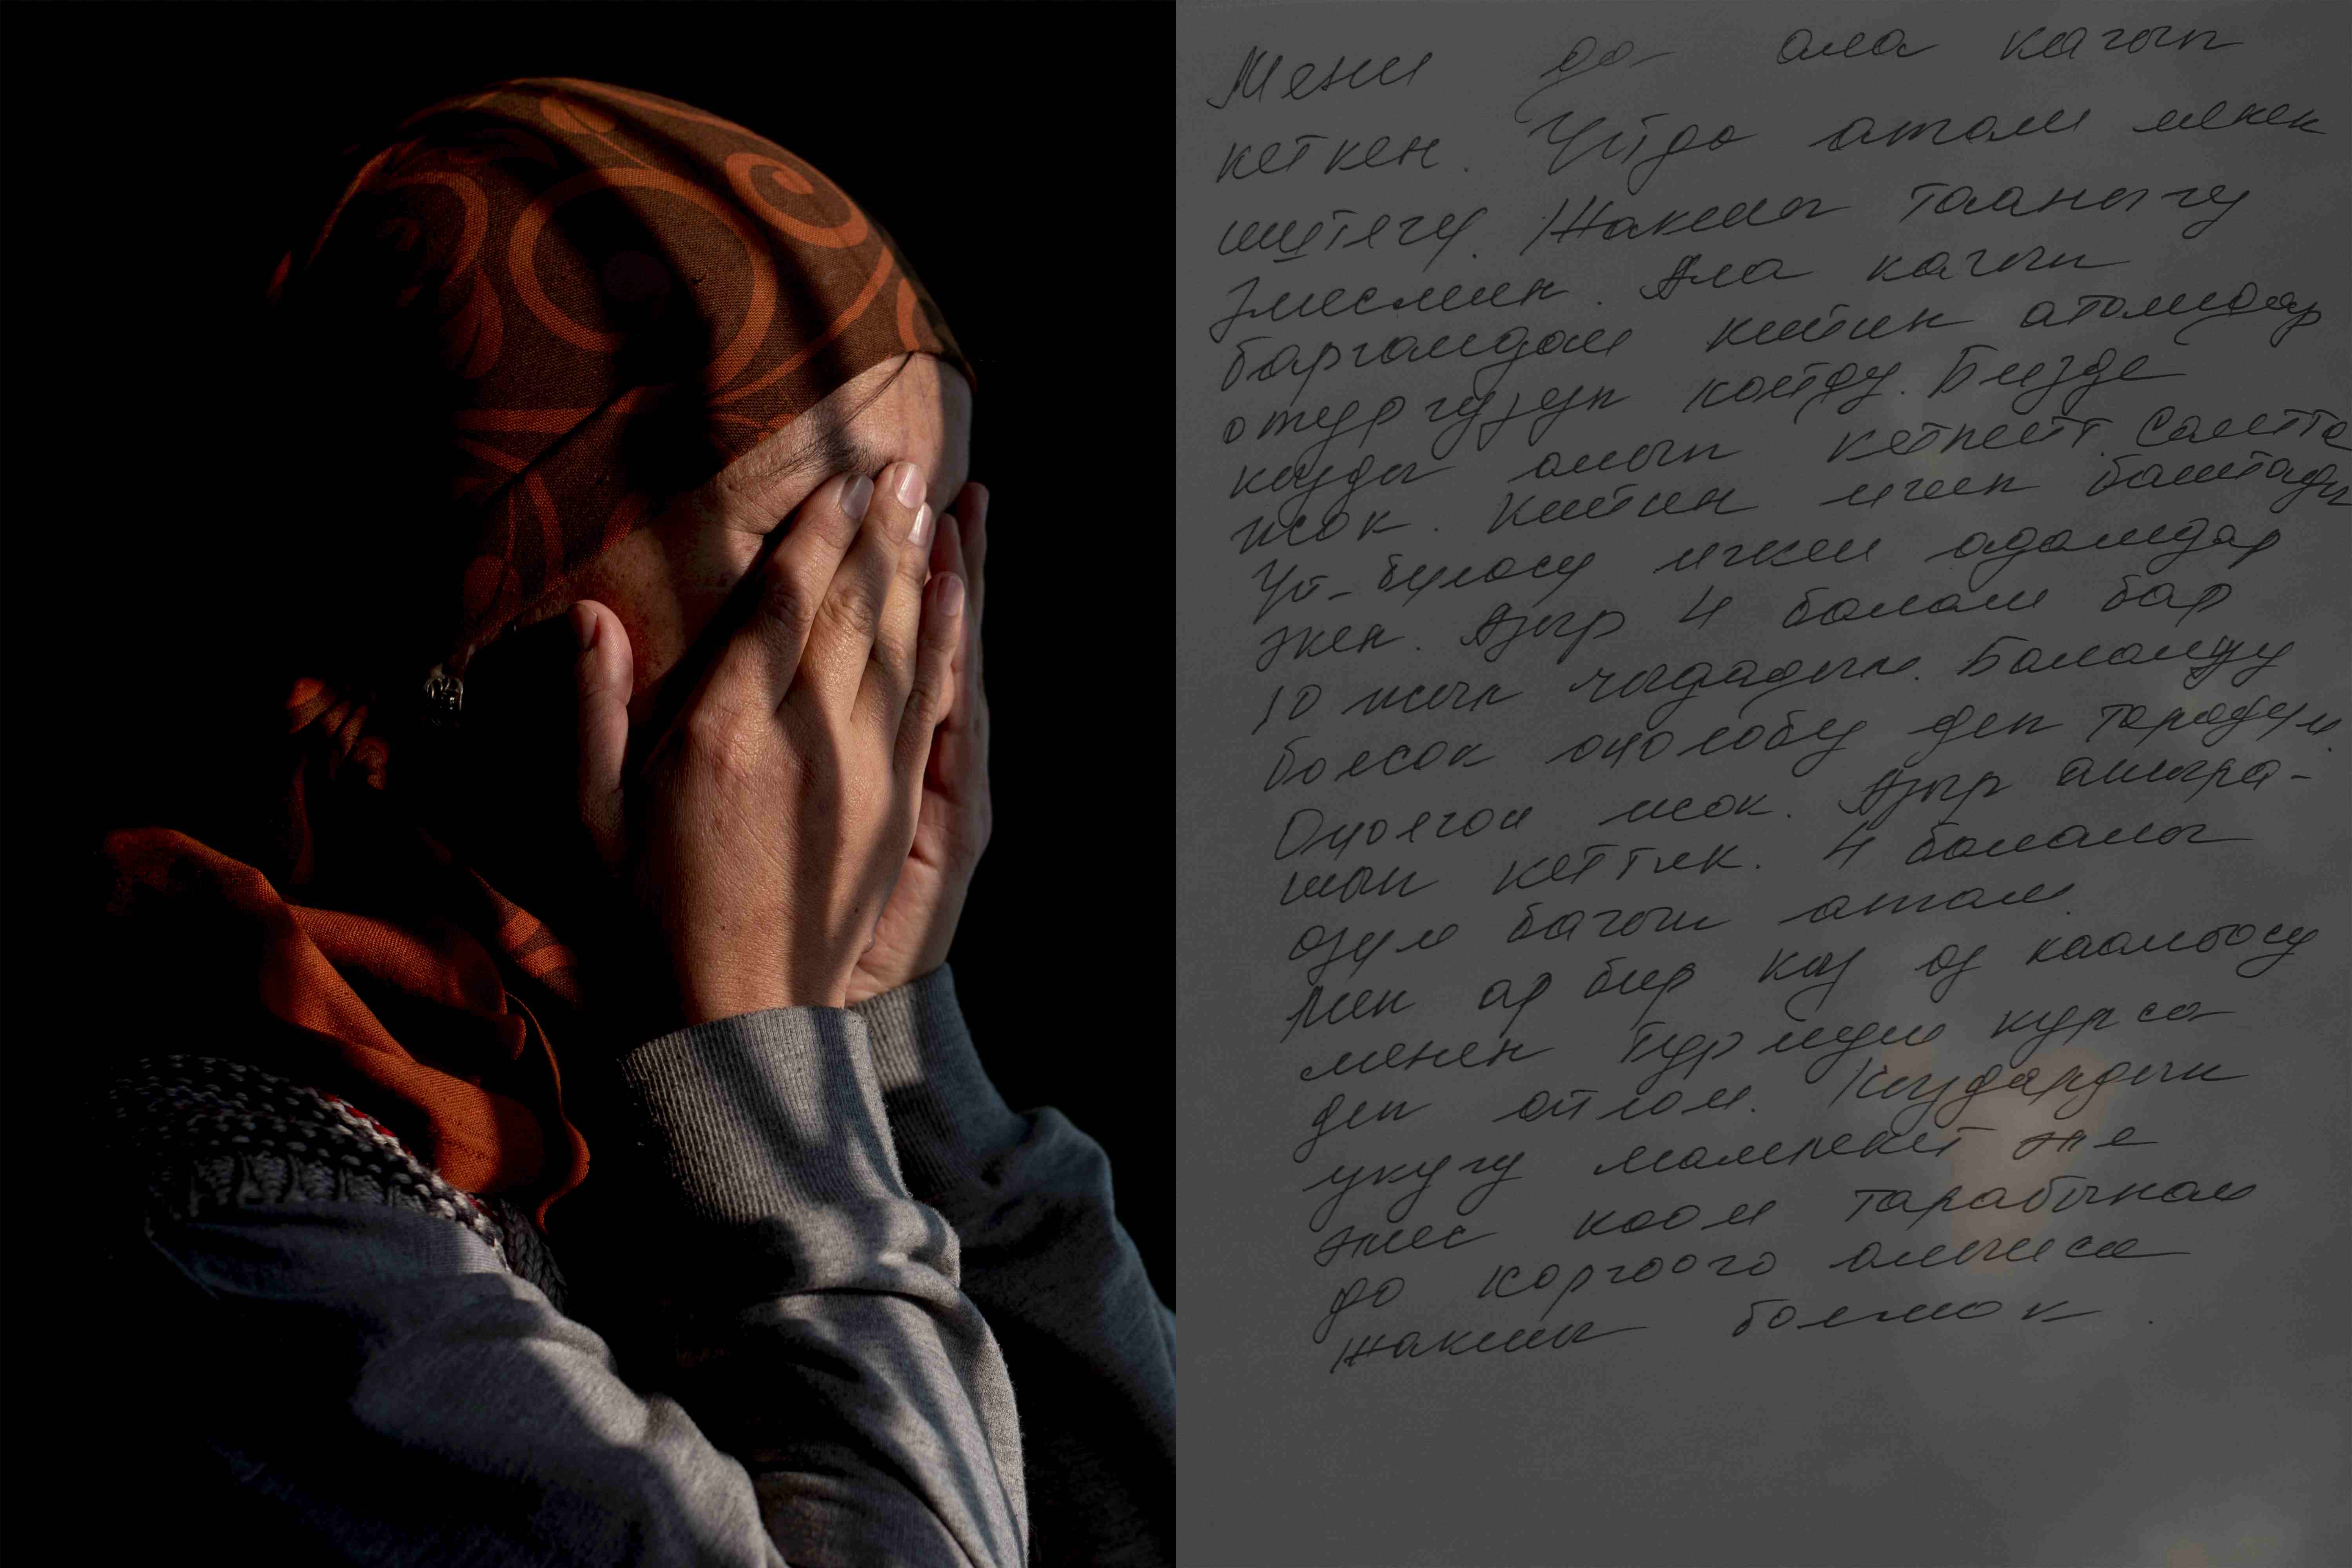 Мени да ала качып
кеткен. Үйдө атам менен
иштечү. Жакшы таанычу
эмесмин. Ала качып
баргандан кийин апамдар
отургузуп койду. Бизде
кызды алып кетпейт. Салтта
жок. Кийин ичип баштады
Үй-бүлөсү ичкен адамдар
экен. Азыр 4 балам бар
10 жыл чыдадым. Балалуу
болсок оңолобу деп карадым.
Оңолгон жок. Азыр ажыра-
шып кеттик. 4 баламы
өзүм багып атам.
Мен ар бир кыз өз каалоосу
менен турмуш курса
деп ойлом. Кыздардын
укугу мамлекет эле
эмес коом тарабынан
да коргоого алынса
жакшы болмок.